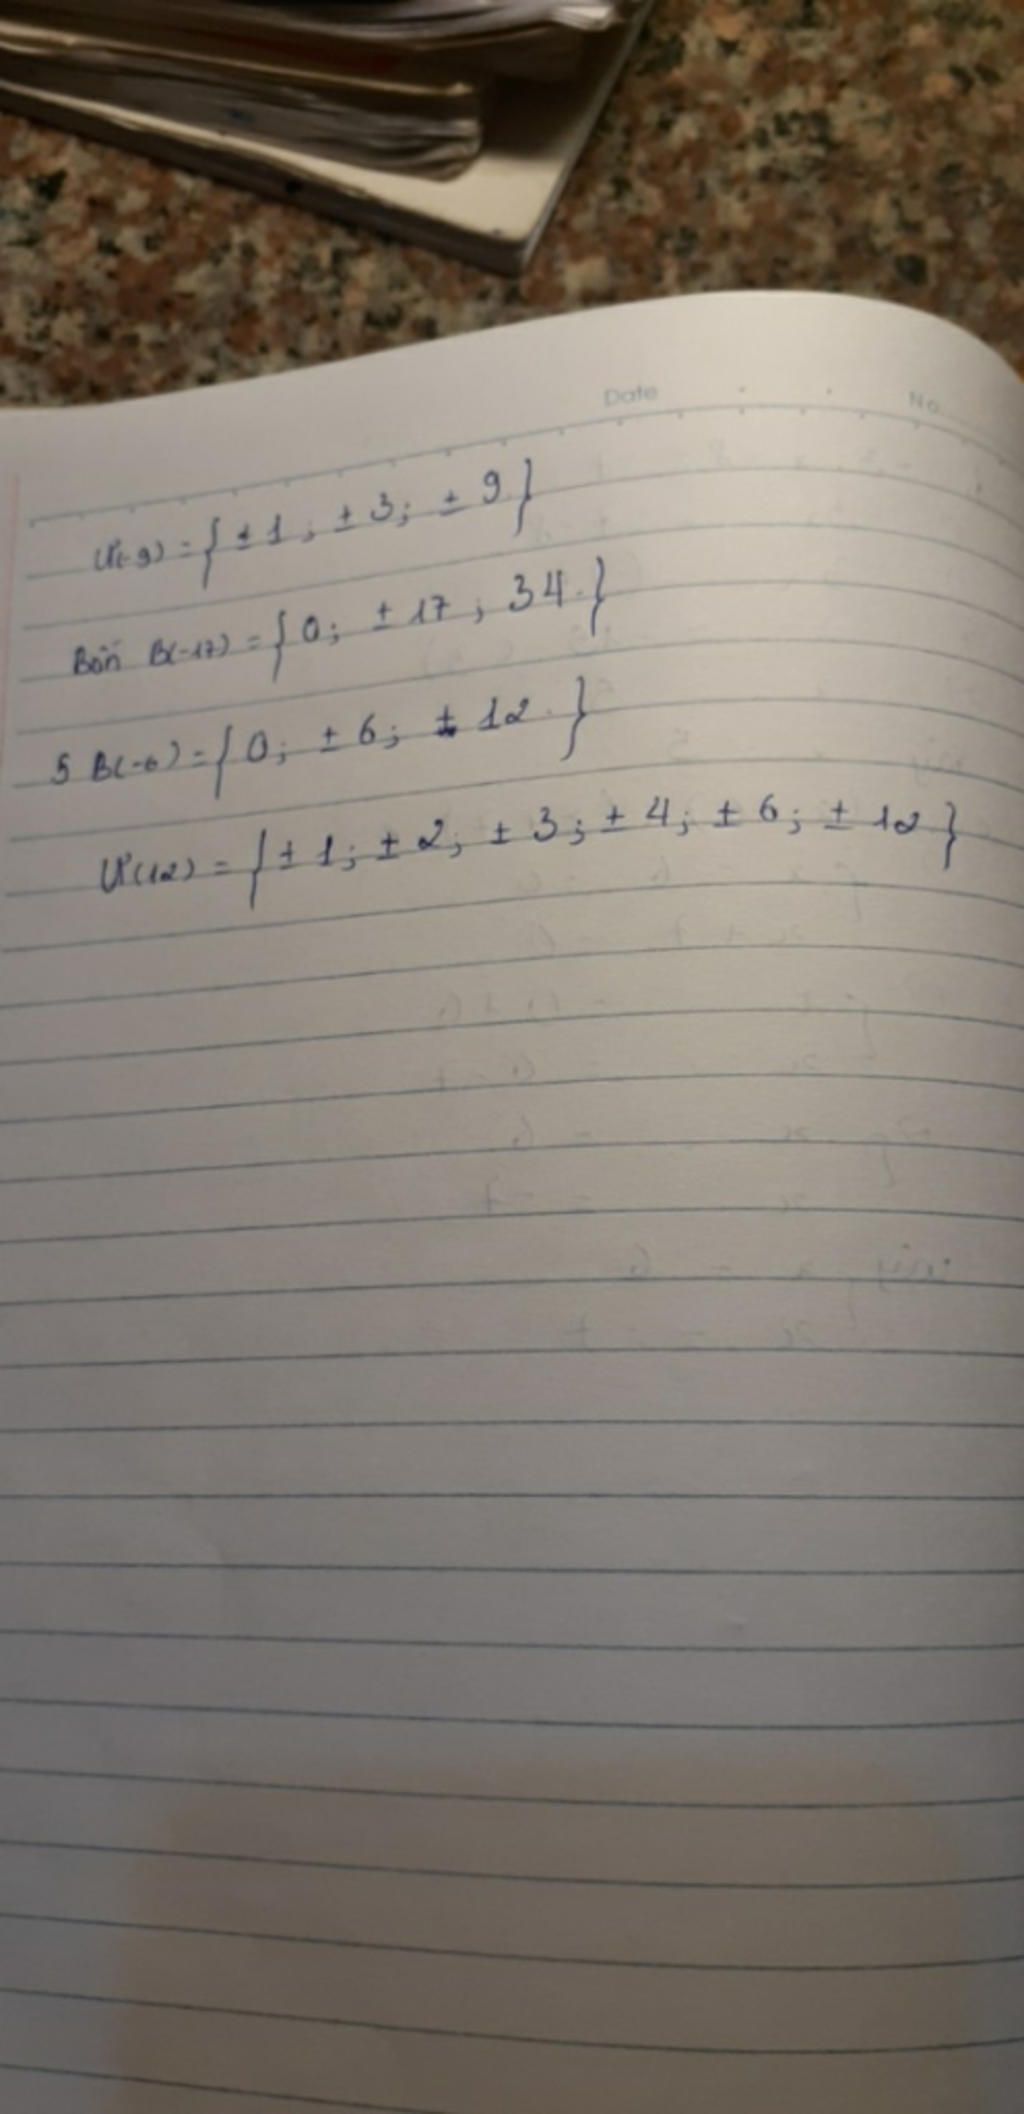 Date No
Ư(-9) = { ± 1 ; ± 3 ; ± 9 }
Bốn B(-17) = { 0 ; ± 17 ; 34 }
5 B(-6) = { 0 ; ± 6 ; ± 12 }
Ư(12) = { ± 1 ; ± 2 ; ± 3 ; ± 4 ; ± 6 ; ± 12 }